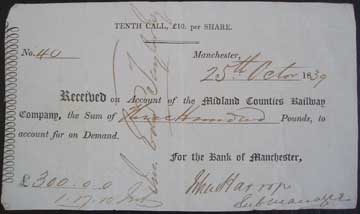 TENTH CALL, £10. per SHARE.
No. 40
Manchester,
25th Octor 1839
Received on Account of the Midland Counties Railway
Company, the Sum of Three Hundred Pounds, to
account for on Demand.
For the Bank of Manchester,
£300.0.0
Submanager